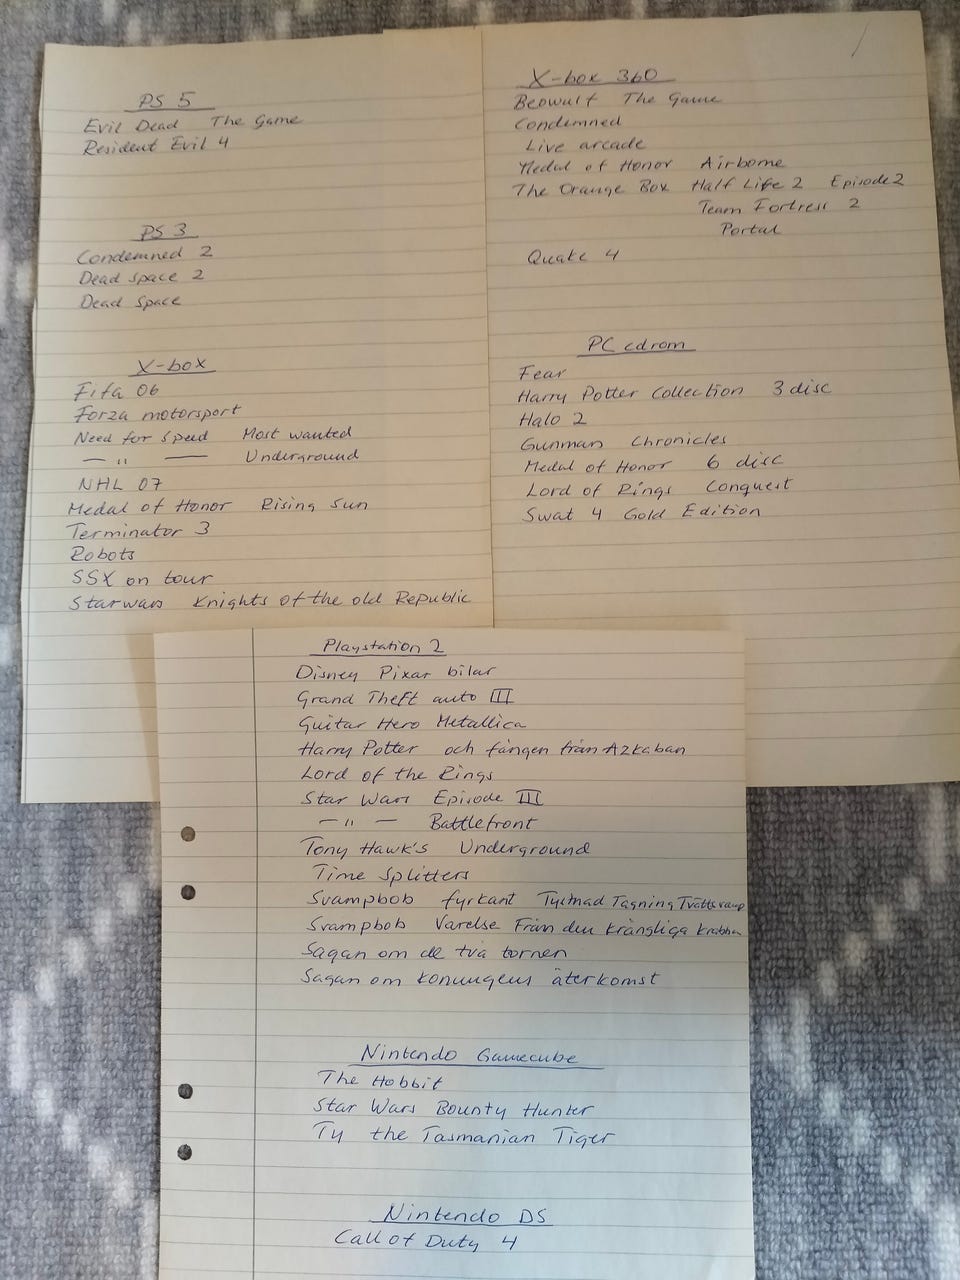 PS 5
Evil Dead The Game
Resident Evil 4
PS 3
Condemned 2
Dead space 2
Dead space
X-box
Fifa 06
Forza motorsport
Need for speed Most wanted
— " — Underground
NHL 07
Medal of Honor Rising sun
Terminator 3
Robots
SSX on tour
Starwars Knights of the old Republic
X-box 360
Beowulf The Game
Condemned
Live arcade
Medal of Honor Airborne
The Orange Box Half Life 2 Episode 2
Team Fortress 2
Portal
Quake 4
PC cdrom
Fear
Harry Potter Collection 3 disc
Halo 2
Gunman Chronicles
Medal of Honor 6 disc
Lord of Rings Conquest
Swat 4 Gold Edition
Playstation 2
Disney Pixar bilar
Grand Theft auto III
Guitar Hero Metallica
Harry Potter och fången från Azkaban
Lord of the Rings
Star Wars Episode III
— " — Battlefront
Tony Hawk's Underground
Time Splitters
Svampbob fyrkant Tystnad Tagning Tvättsvamp
Svampbob Varelse Från den krångliga krabban
Sagan om de två tornen
Sagan om konungens återkomst
Nintendo Gamecube
The Hobbit
Star Wars Bounty Hunter
Ty the Tasmanian Tiger
Nintendo DS
Call of Duty 4